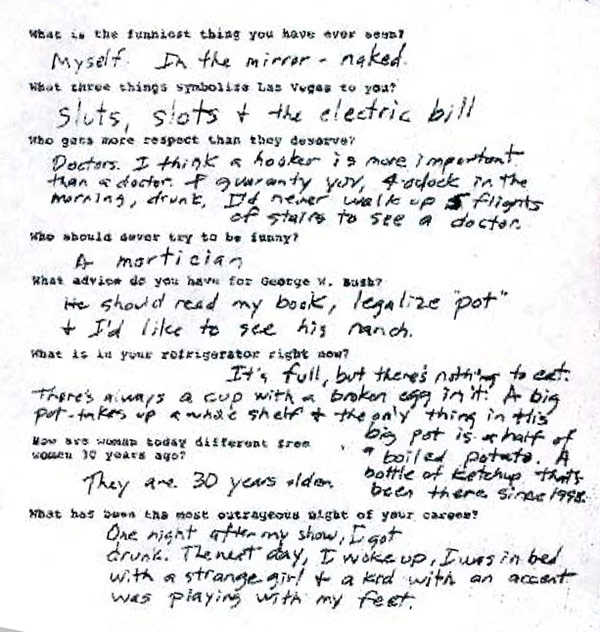 What is the funniest thing you have ever seen?
Myself. In the mirror - naked.
What three things symbolize Las Vegas to you?
Sluts, slots + the electric bill
Who gets more respect than they deserve?
Doctors. I think a hooker is more important
than a doctor. I guaranty you, 4 oclock in the
morning, drunk, I'd never walk up 5 flights
of stairs to see a doctor.
Who should never try to be funny?
A mortician
What advice do you have for George W. Bush?
He should read my book, legalize "pot"
+ I'd like to see his ranch.
What is in your refrigerator right now?
It's full, but there's nothing to eat.
There's always a cup with a broken egg in it. A big
pot-takes up a whole shelf + the only thing in this
big pot is a half of
a boiled potato. A
bottle of Ketchup that's
been there since 1998.
How are women today different from
women 30 years ago?
They are 30 years older.
What has been the most outrageous night of your career?
One night after my show, I got
drunk. The next day, I woke up, I was in bed
with a strange girl + a kid with an accent
was playing with my feet.